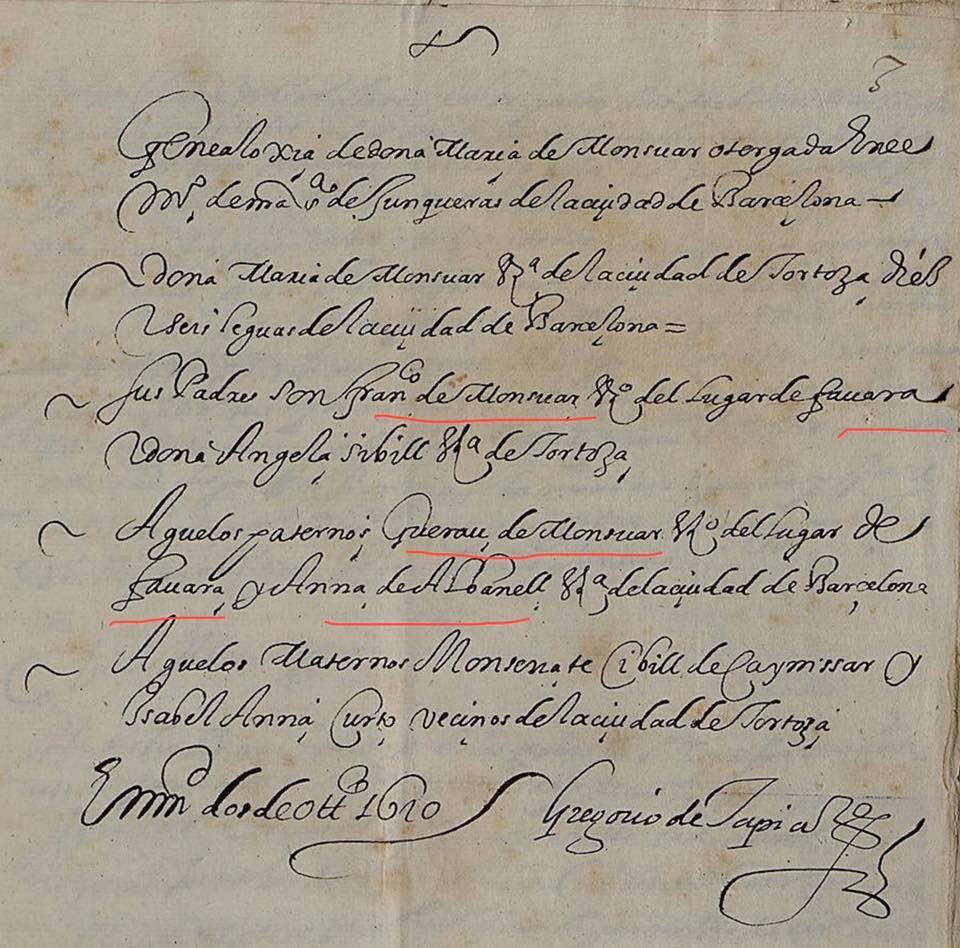 3
Genealoxia de doña Maria de Monsuar otorgada Enel
Mº. de mª S.ª de Junqueras de la ciudad de Barcelona —
doña Maria de Monsuar Vzª de la ciudad de Tortoza diez
y seis leguas de la ciudad de Barcelona =
Sus Padres son Franco de Monsuar Vzº del Lugar de favara
y doña Angela sibill Vzª de Tortoza
Aguelos paternos Guerau de Monsuar Vzº del Lugar de
favara y Anna de Albanell Vzª de la ciudad de Barcelona
Aguelos Maternos Monserrate Cibill de Caymissar y
Isabel Anna Curto vecinos de la ciudad de Tortoza
En md dos de Ottº 1610 Gregorio de Tapia